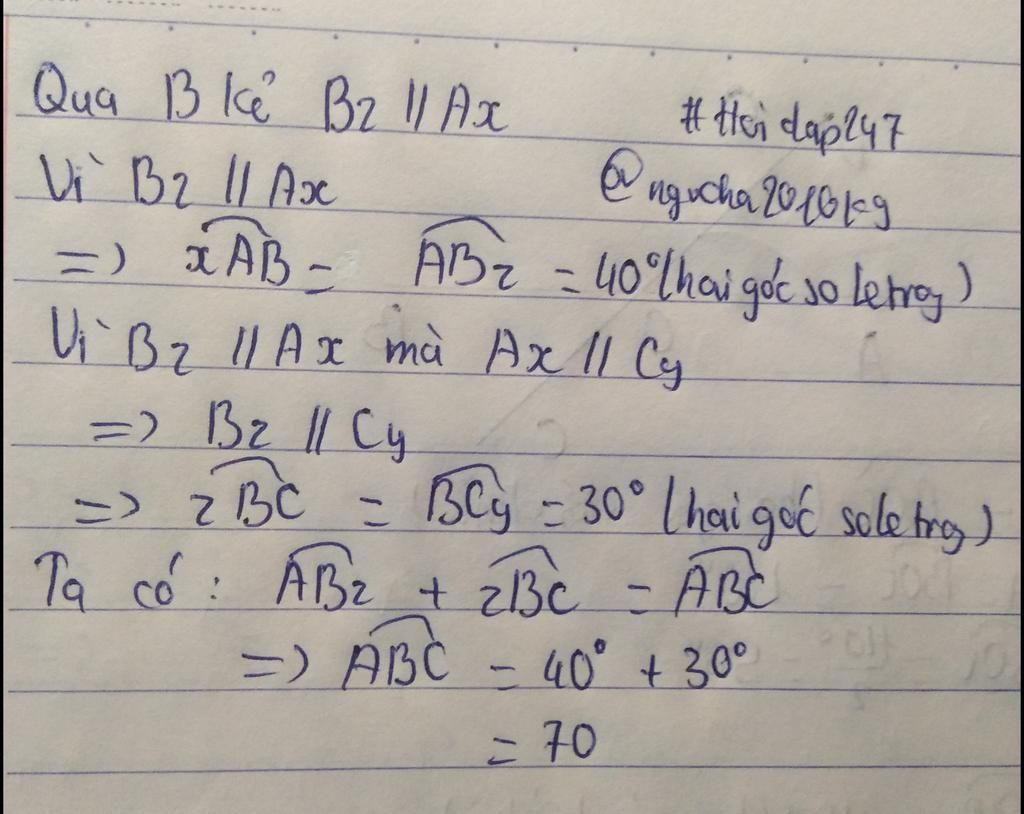 Qua B kẻ Bz // Ax #Hoidap247
Vì Bz // Ax @ngocha2010kg
=> xAB = ABz = 40° (hai góc so le trog)
Vì Bz // Ax mà Ax // Cy
=> Bz // Cy
=> zBC = BCy = 30° (hai góc so le trog)
Ta có: ABz + zBC = ABC
=> ABC = 40° + 30°
= 70